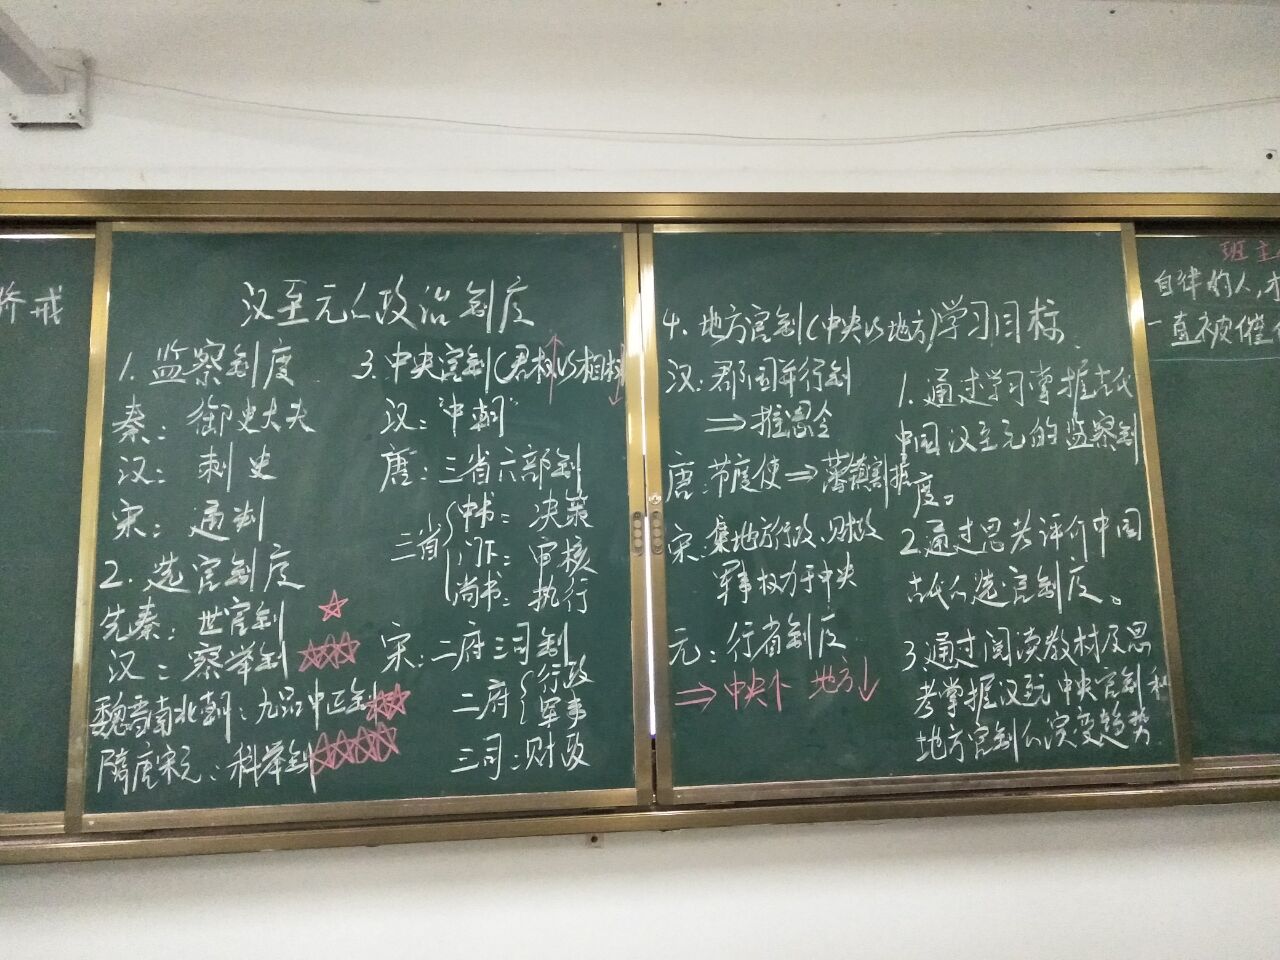 骄戒
汉至元的政治制度
1. 监察制度
秦：御史大夫
汉：刺史
宋：通判
2. 选官制度
先秦：世官制 ☆
汉：察举制 ☆☆☆
魏晋南北朝：九品中正制 ☆☆
隋唐宋元：科举制 ☆☆☆☆
3. 中央官制(君权↑VS相权↓
汉：“中朝”
唐：三省六部制
三省{中书：决策
门下：审核
尚书：执行
宋：二府三司制
二府{行政
军事
三司：财政
4. 地方官制(中央VS地方)
汉：郡国并行制
⇒推恩令
唐：节度使⇒藩镇割据
宋：集地方行政、财政
军事权力于中央
元：行省制度
⇒中央↑ 地方↓
学习目标
1. 通过学习掌握古代
中国汉至元的监察制
度。
2. 通过思考评价中国
古代的选官制度。
3. 通过阅读教材及思
考掌握汉至元中央官制和
地方官制的演变趋势
班主
自律的人,才
一直被催